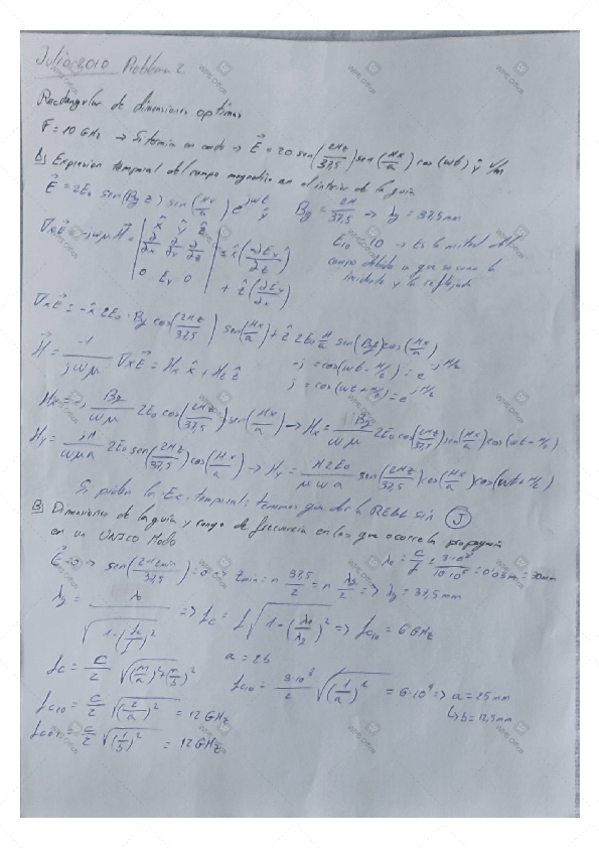 Julio 2010 Problema 2
Rectangular de dimensiones optimas
F = 10 GHz → Si termina en corto → E⃗ = 20 sen(2πz/37,5) sen(πx/a) cos(wt) ŷ V/m
b) Expresion temporal del campo magnetico en el interior de la guia
E⃗ = 2E₀ sen(Bg z) sen(πx/a) e^{jwt} ŷ    Bg = 2π/37,5 → λg = 37,5 mm
∇xE⃗ = -jwμH⃗ = | x̂ ŷ ẑ ; ∂/∂x ∂/∂y ∂/∂z ; 0 Ey 0 | = x̂(-∂Ey/∂z) + ẑ(∂Ey/∂x)
E₁₀ = 10 → Es la mitad del
campo debido a que se suma la
incidente y la reflejada
∇xE⃗ = -x̂ 2E₀ · Bg cos(2πz/37,5) sen(πx/a) + ẑ 2E₀ π/a sen(Bg z) cos(πx/a)
H⃗ = -1/(jwμ) ∇xE⃗ = Hx x̂, Hz ẑ    -j = cos(wt - π/2) = e^{-jπ/2}
j = cos(wt + π/2) = e^{jπ/2}
Hx = -j Bg/(wμ) 2E₀ cos(2πz/37,5) sen(πx/a) → Hx = Bg/(wμ) 2E₀ cos(2πz/37,5) sen(πx/a) cos(wt - π/2)
Hy = jπ/(wμa) 2E₀ sen(2πz/37,5) cos(πx/a) → Hy = π2E₀/(μwa) sen(2πz/37,5) cos(πx/a) cos(wt + π/2)
Si piden la Ec. temporal: tenemos que dar la REAL sin (J)
B) Dimensiones de la guia y rango de frecuencia en los que ocurre la propagación
en un UNICO Modo
λ₀ = c/f = 3·10⁸/10·10⁹ = 0'03m = 30mm
E⃗ = 0 → sen(2πzmin/37,5) = 0 → zmin = n 37,5/2 = n λg/2 => λg = 37,5 mm
λg = λ₀/√(1-(fc/f)²) => fc = f√(1-(λ₀/λg)²) => fc₁₀ = 6 GHz
fc = c/2 √((m/a)²+(n/b)²)    a = 2b    fc₁₀ = 3·10⁸/2 √((1/a)²) = 6·10⁹ => a = 25 mm
↳ b = 12,5mm
fc₂₀ = c/2 √((2/a)²) = 12 GHz
fc₀₁ = c/2 √((1/b)²) = 12 GHz